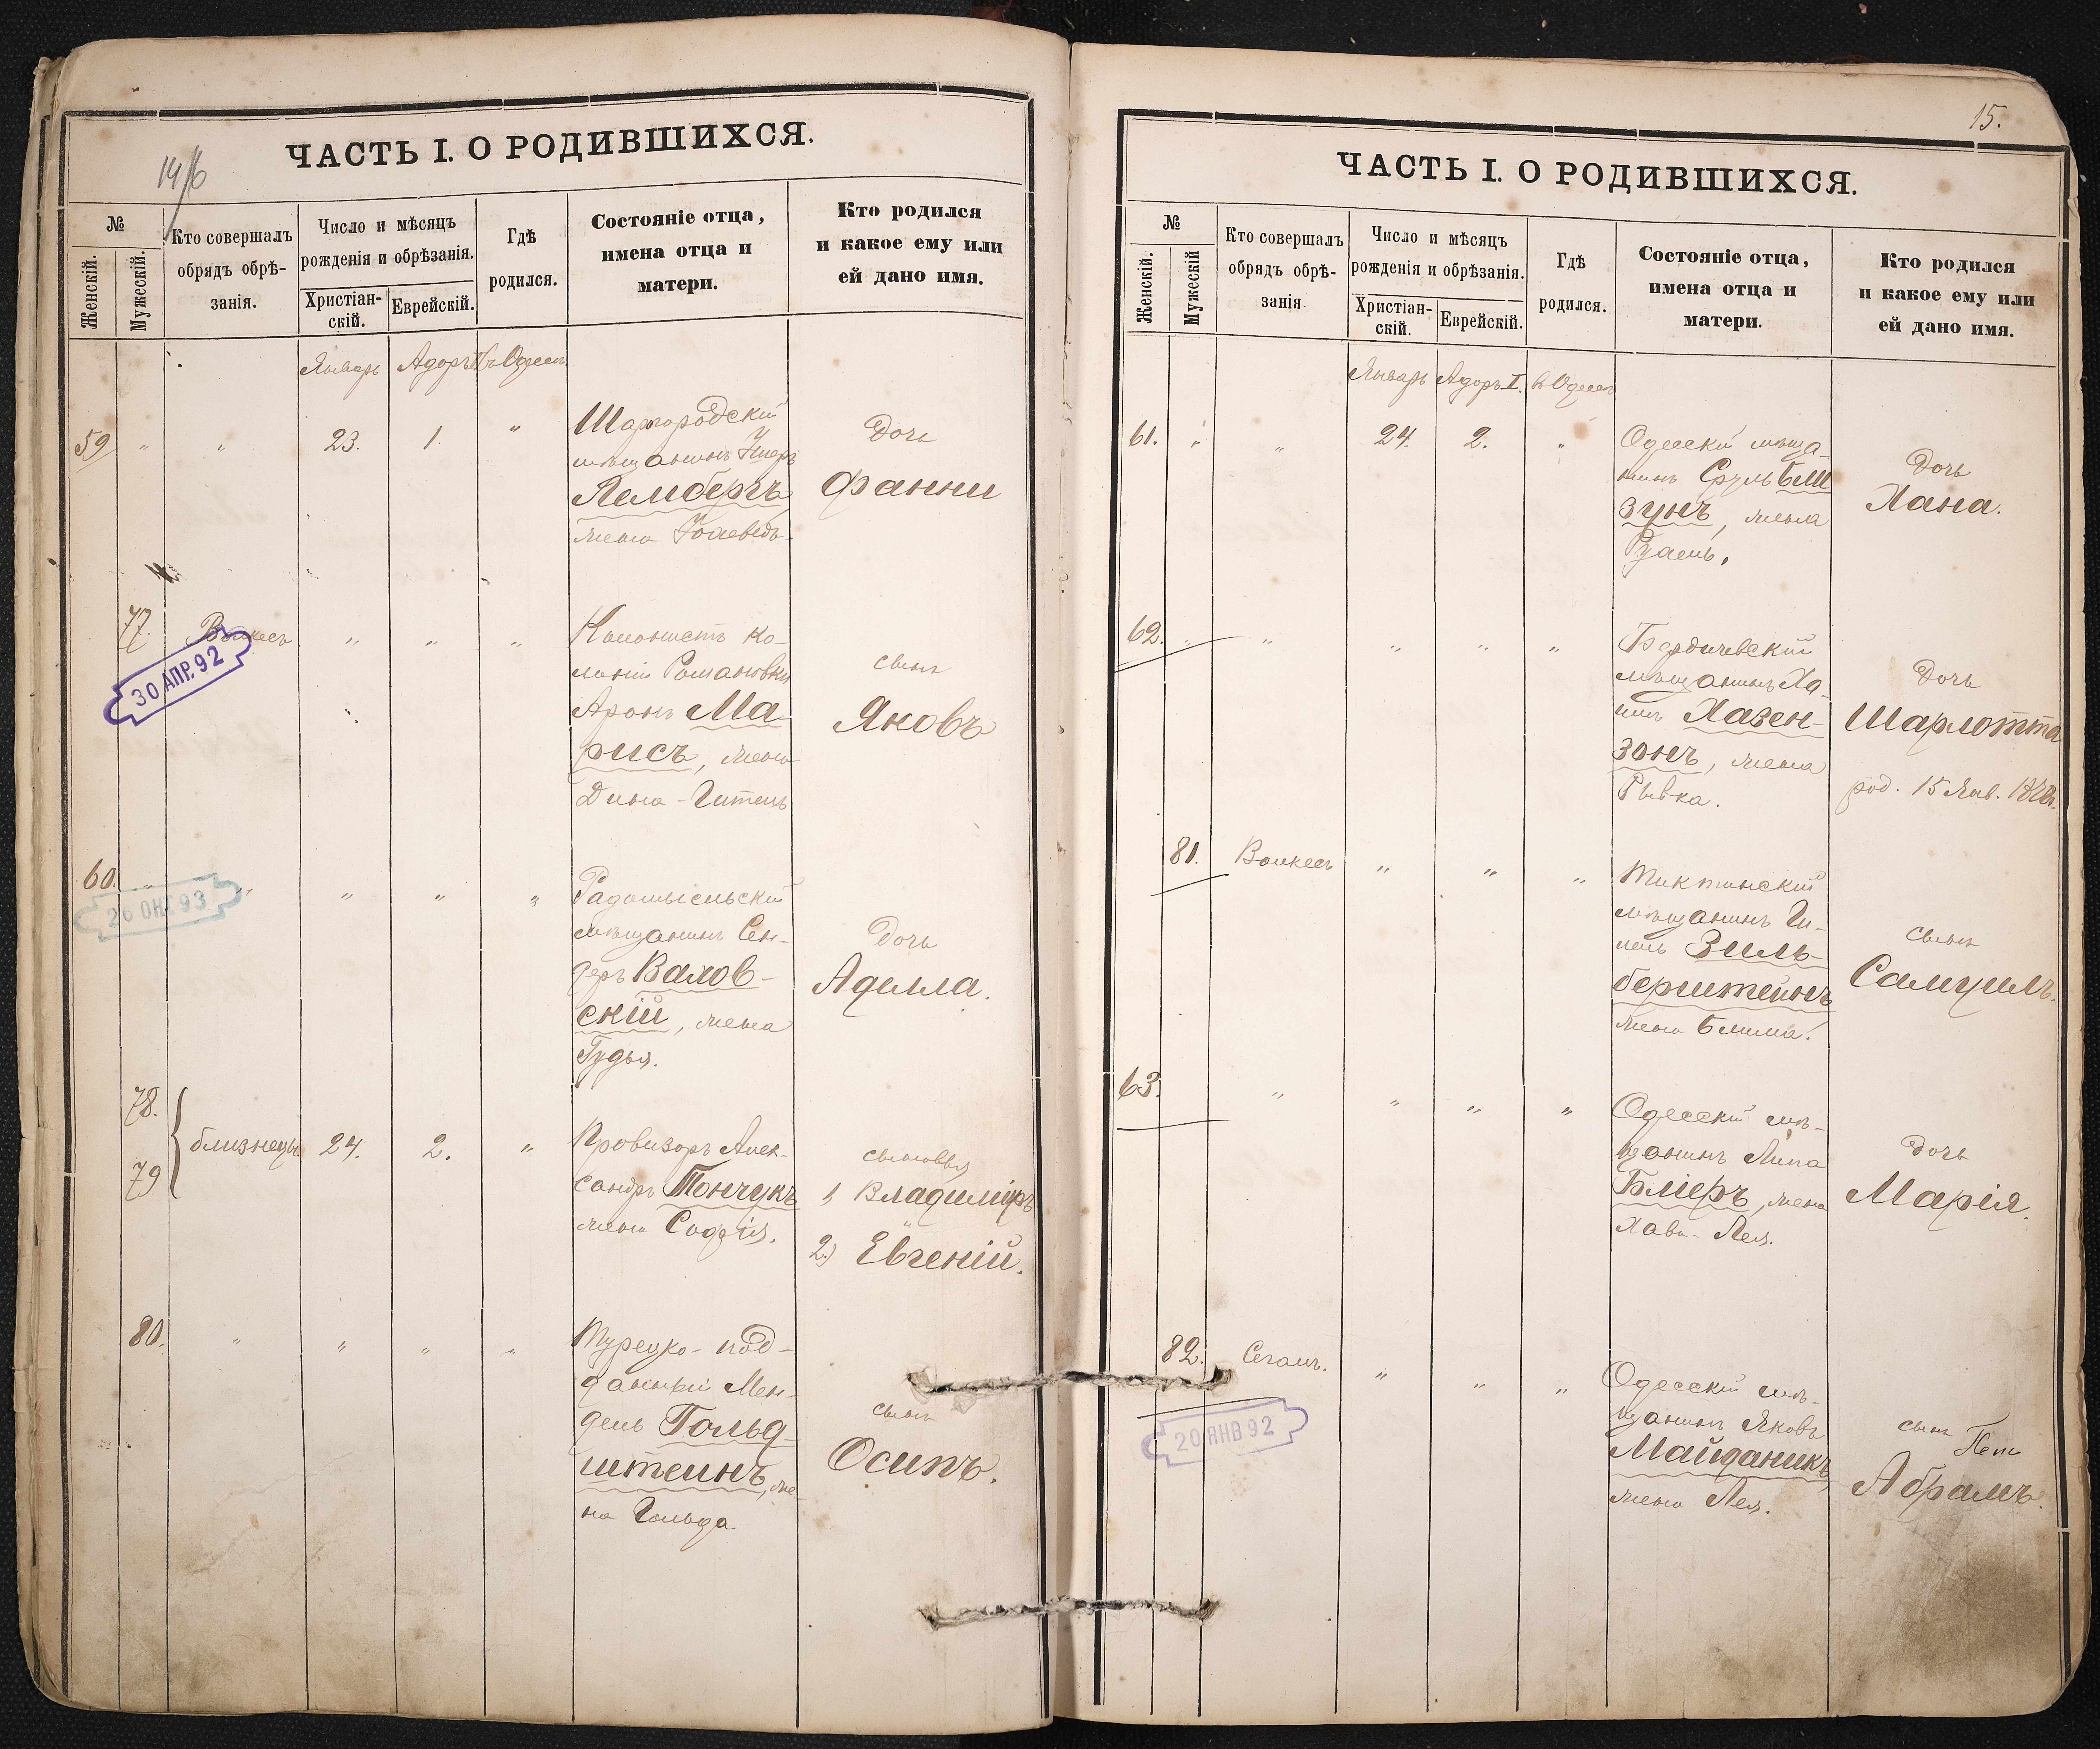 ЧАСТЬ I. О РОДИВШИХСЯ.
№
Женскій.
Мужескій.
Кто совершалъ
обрядъ обрѣ-
занія.
Число и мѣсяцъ
рожденія и обрѣзанія.
Христіан-
скій.
Еврейскій.
Гдѣ
родился.
Состояніе отца,
имена отца и
матери.
Кто родился
и какое ему или
ей дано имя.
Январь Адоръ I въ Одессѣ
59 " " 23. 1. "
Шаргородскій
мѣщанинъ
Лембергъ
жена
Дочь
Фанни
77. Волкесъ " " "
30 АПР. 92
Колонистъ ко-
лоніи Романовки
Аронъ Ма-
рисъ, жена
Дина-Гитель
сынъ
Яковъ
60. " " " " "
26 ОКТ 93
Радомысльскій
мѣщанинъ Сен-
деръ Валов-
скій, жена
Гудья.
Дочь
Аделла.
78.
79
близнецы 24. 2. "
Провизоръ Алек-
сандръ Тончукъ
жена Софія.
сыновья
1) Владиміръ
2) Евгеній.
80. " " " "
Турецко-под-
данный Мен-
дель Гольд-
штейнъ, же-
на Гольда
сынъ
Осипъ.
15.
ЧАСТЬ I. О РОДИВШИХСЯ.
№
Женскій.
Мужескій
Кто совершалъ
обрядъ обрѣ-
занія.
Число и мѣсяцъ
рожденія и обрѣзанія.
Христіан-
скій.
Еврейскій.
Гдѣ
родился.
Состояніе отца,
имена отца и
матери.
Кто родился
и какое ему или
ей дано имя.
Январь Адоръ I. въ Одессѣ
61. " " 24. 2. "
Одесскій мѣща-
нинъ Сруль
зунъ, жена
Дочь
Хана.
62. " " " " "
Бердичевскій
мѣщанинъ Ха-
имъ Хазен-
зонъ, жена
Рывка.
Дочь
Шарлотта
род. 15 Янв.
81. Волкесъ " " "
Тиктинскій
мѣщанинъ Ги-
лель Зиль-
берштейнъ
жена Блима.
сынъ
Самуилъ.
63. " " " "
Одесскій мѣ-
щанинъ Липа
Бліеръ, жена
Хава-Лея.
Дочь
Марія.
82. Сегалъ. " " "
20 ЯНВ 92
Одесскій мѣ-
щанинъ Яковъ
Майданикъ,
жена Лея.
сынъ
Абрамъ.